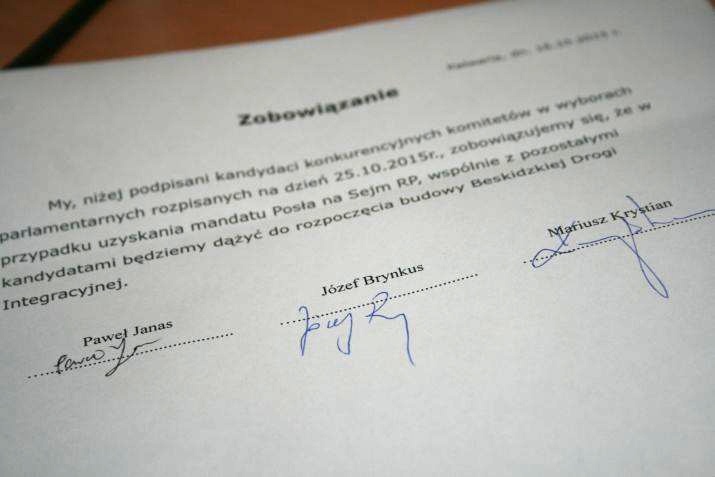 Zobowiązanie
My, niżej podpisani kandydaci konkurencyjnych komitetów w wyborach
parlamentarnych rozpisanych na dzień 25.10.2015r., zobowiązujemy się, że w
przypadku uzyskania mandatu Posła na Sejm RP, wspólnie z pozostałymi
kandydatami będziemy dążyć do rozpoczęcia budowy Beskidzkiej Drogi
Integracyjnej.
Paweł Janas
Józef Brynkus
Mariusz Krystian